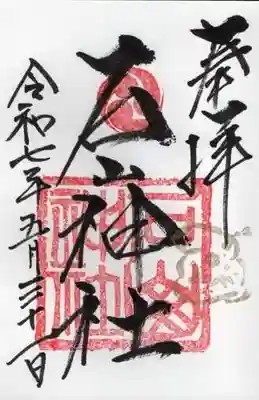 奉拝
山神社
令和七年五月三十一日